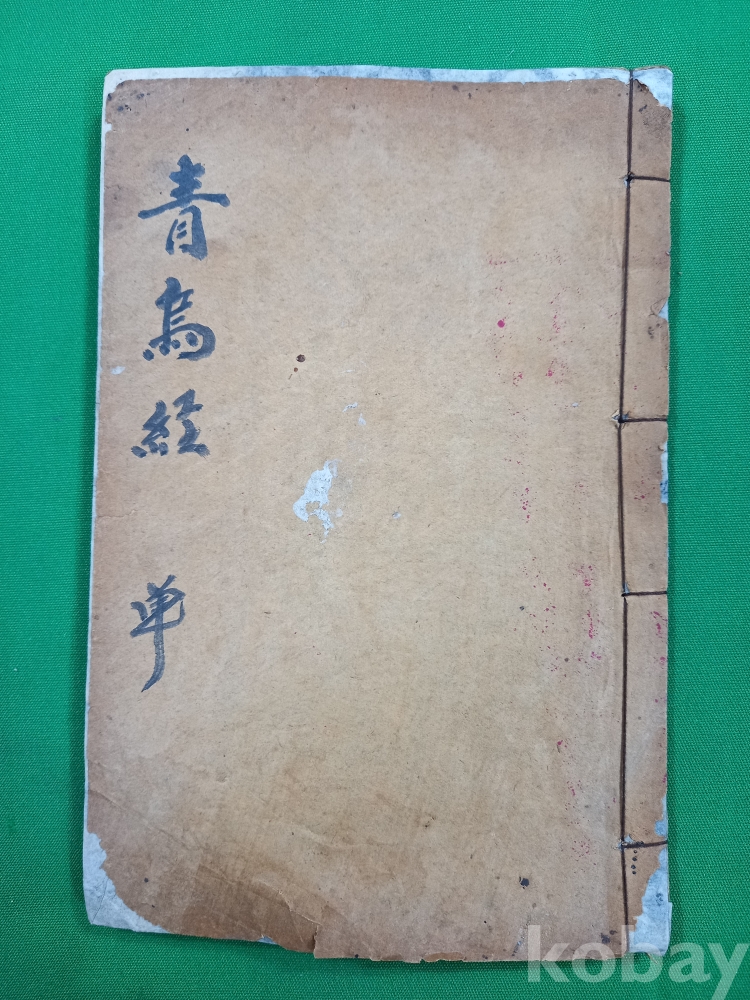 青烏經 单
kobay